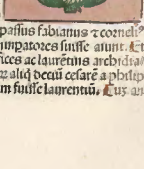 passus fabianus ⁊ corneliꝰ
imꝑatores fuisse aiunt. Et
fices ac laurētius archidia
⁊ aliq̄ deciū cesarē a philip
m fuisse laurentiū. Cuz an